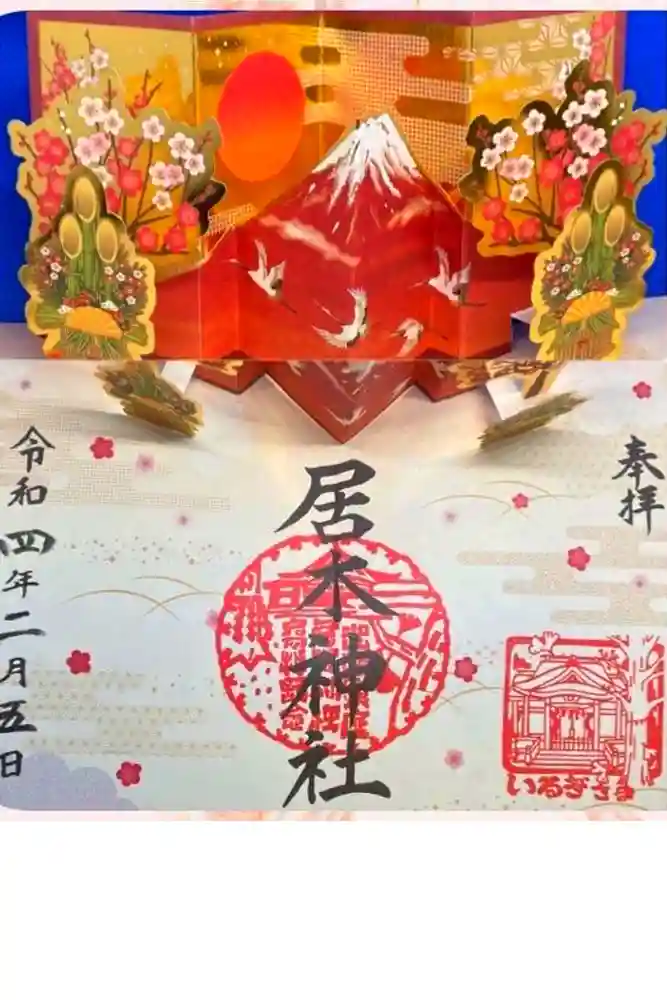 奉拝
居木神社
いるぎさま
令和四年二月五日